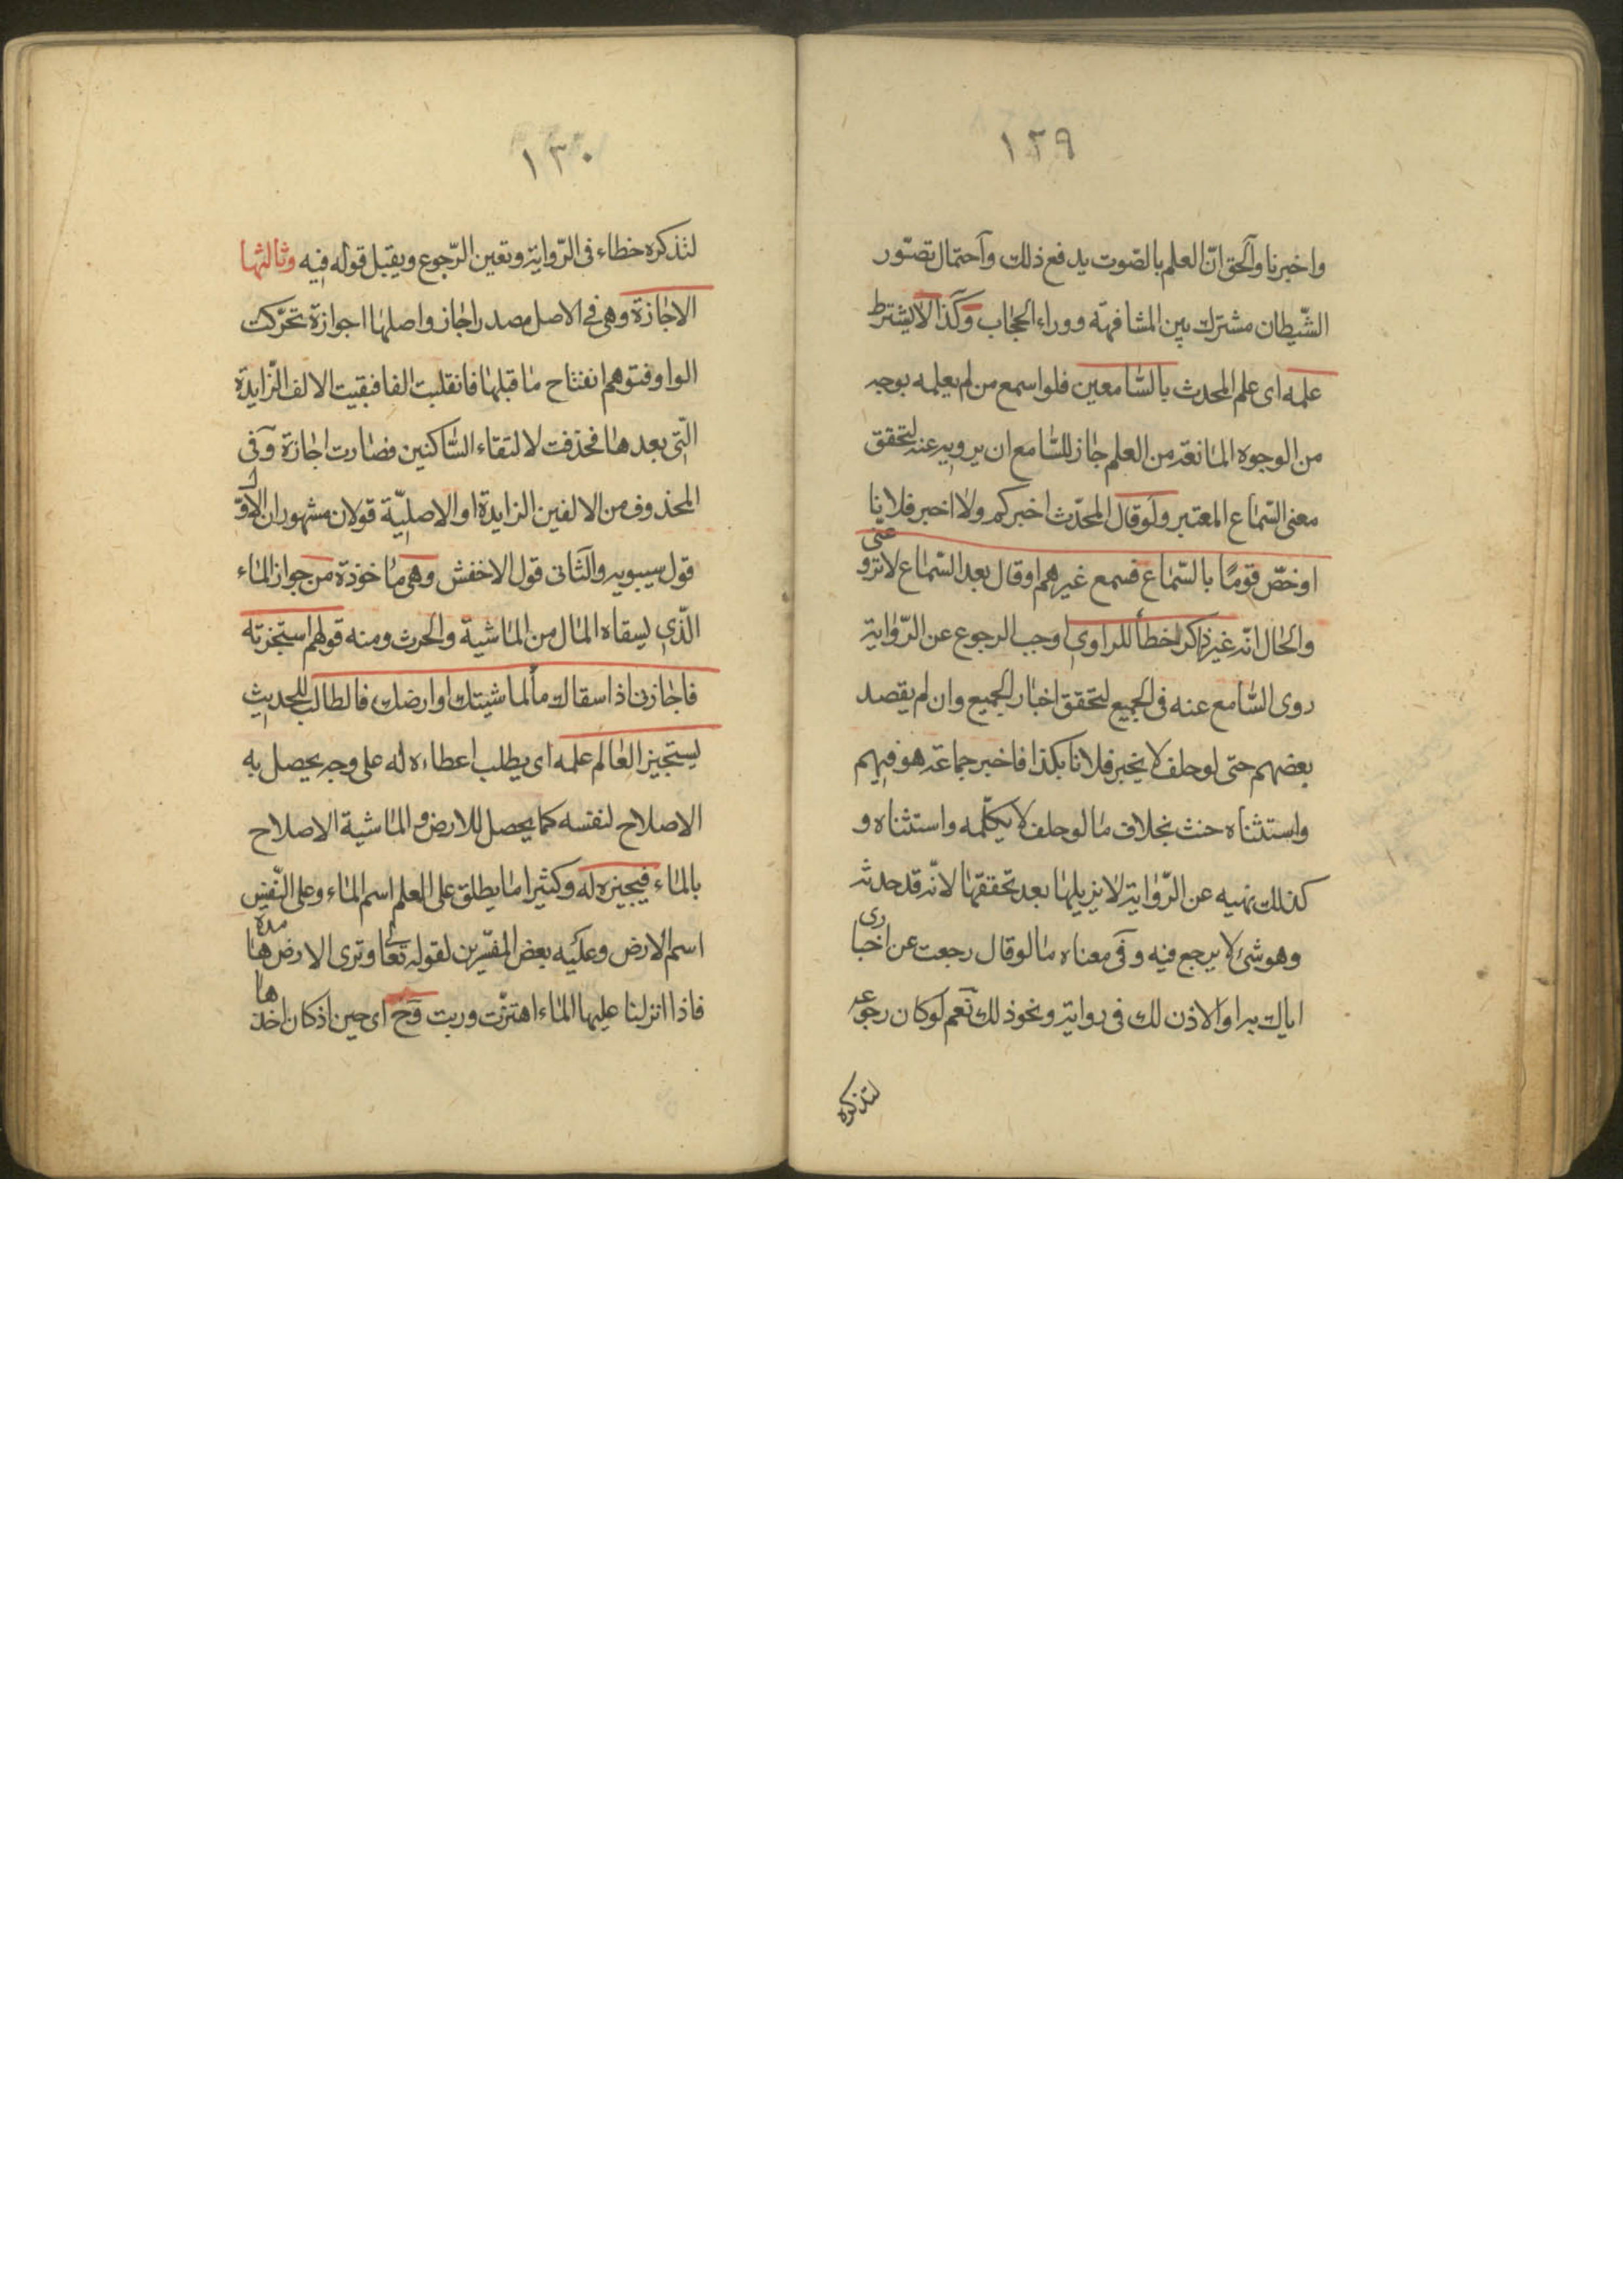 ١٢٩
واخبرنا والحق انّ العلم بالصّوت يدفع ذلك واحتمال تصوّر
الشّيطان مشترك بين المشافهة ووراء الحجاب وكذا لا يشترط
علمه اى علم المحدث بالسّامعين فلو اسمع من لم يعلمه بوجه
من الوجوه المانعة من العلم جاز للسّامع ان يرويه عنه لتحقق
معنى السّماع المعتبر ولو قال المحدّث اخبركم ولا اخبر فلانا
او خصّ قومًا بالسّماع فسمع غيرهم او قال بعد السّماع لا ترو عنى
والحال انّه غير ذاكر خطأ للراوى اوجب الرجوع عن الرّواية
روى السّامع عنه فى الجميع لتحقق اخبار الجميع وان لم يقصد
بعضهم حتى لو حلف لا يخبر فلانا بكذا فاخبر جماعة هو فيهم
واستثناه حنث بخلاف ما لو حلف لا يكلّمه واستثناه و
كذلك نهيه عن الرّواية لا يزيلها بعد تحققها لانّه قد حدثه
وهو شئ لا يرجع فيه وفى معناه ما لو قال رجعت عن اخبارى
اياك به او الاذن لك فى روايته ونحو ذلك نعم لو كان رجوعه
لتذكره
١٣٠
لتذكره خطاء فى الرّواية وتعين الرّجوع ويقبل قوله فيه وثالثها
الاجازة وهى فى الاصل مصدر اجاز واصلها اجوازة تحرّكت
الواو فتوهم انفتاح ما قبلها فانقلبت الفا فبقيت الالف الزّايدة
الّتى بعدها فحذفت لالتقاء السّاكنين فصارت اجازة وفى
المحذوف من الالفين الزايدة او الاصليّة قولان مشهوران الاوّل
قول سيبويه والثانى قول الاخفش وهى ماخوذة من جواز الماء
الّذى يسقاه المال من الماشية والحرث ومنه قولهم استجزته
فاجازنى اذا سقاك مأ لماشيتك او ارضك فالطالب للحديث
يستجيز العالم علمه اى يطلب اعطاءه له على وجه يحصل به
الاصلاح لنفسه كما يحصل للارض والماشية الاصلاح
بالماء فيجيزه له وكثيرا ما يطلق على العلم اسم الماء وعلى النّفس
اسم الارض وعليه بعض المفسّرين لقوله تعالى وترى الارض هامدة
فاذا انزلنا عليها الماء اهتزّت وربت وح اى حين اذ كان اخذها